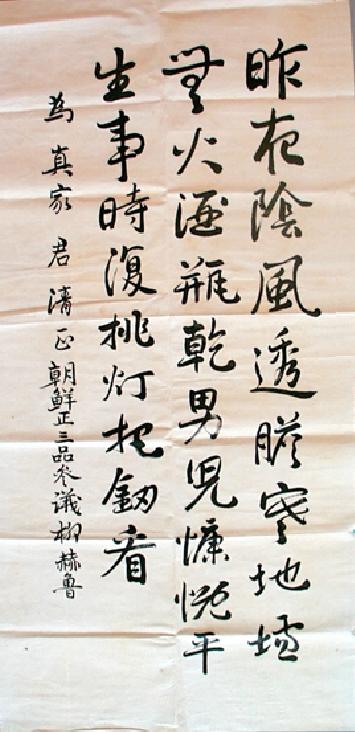 昨夜陰風透膽寒地壚
無火酒瓶乾男児慷慨平
生事時復挑灯把釼看
為真家君清正朝鮮正三品参議柳赫魯